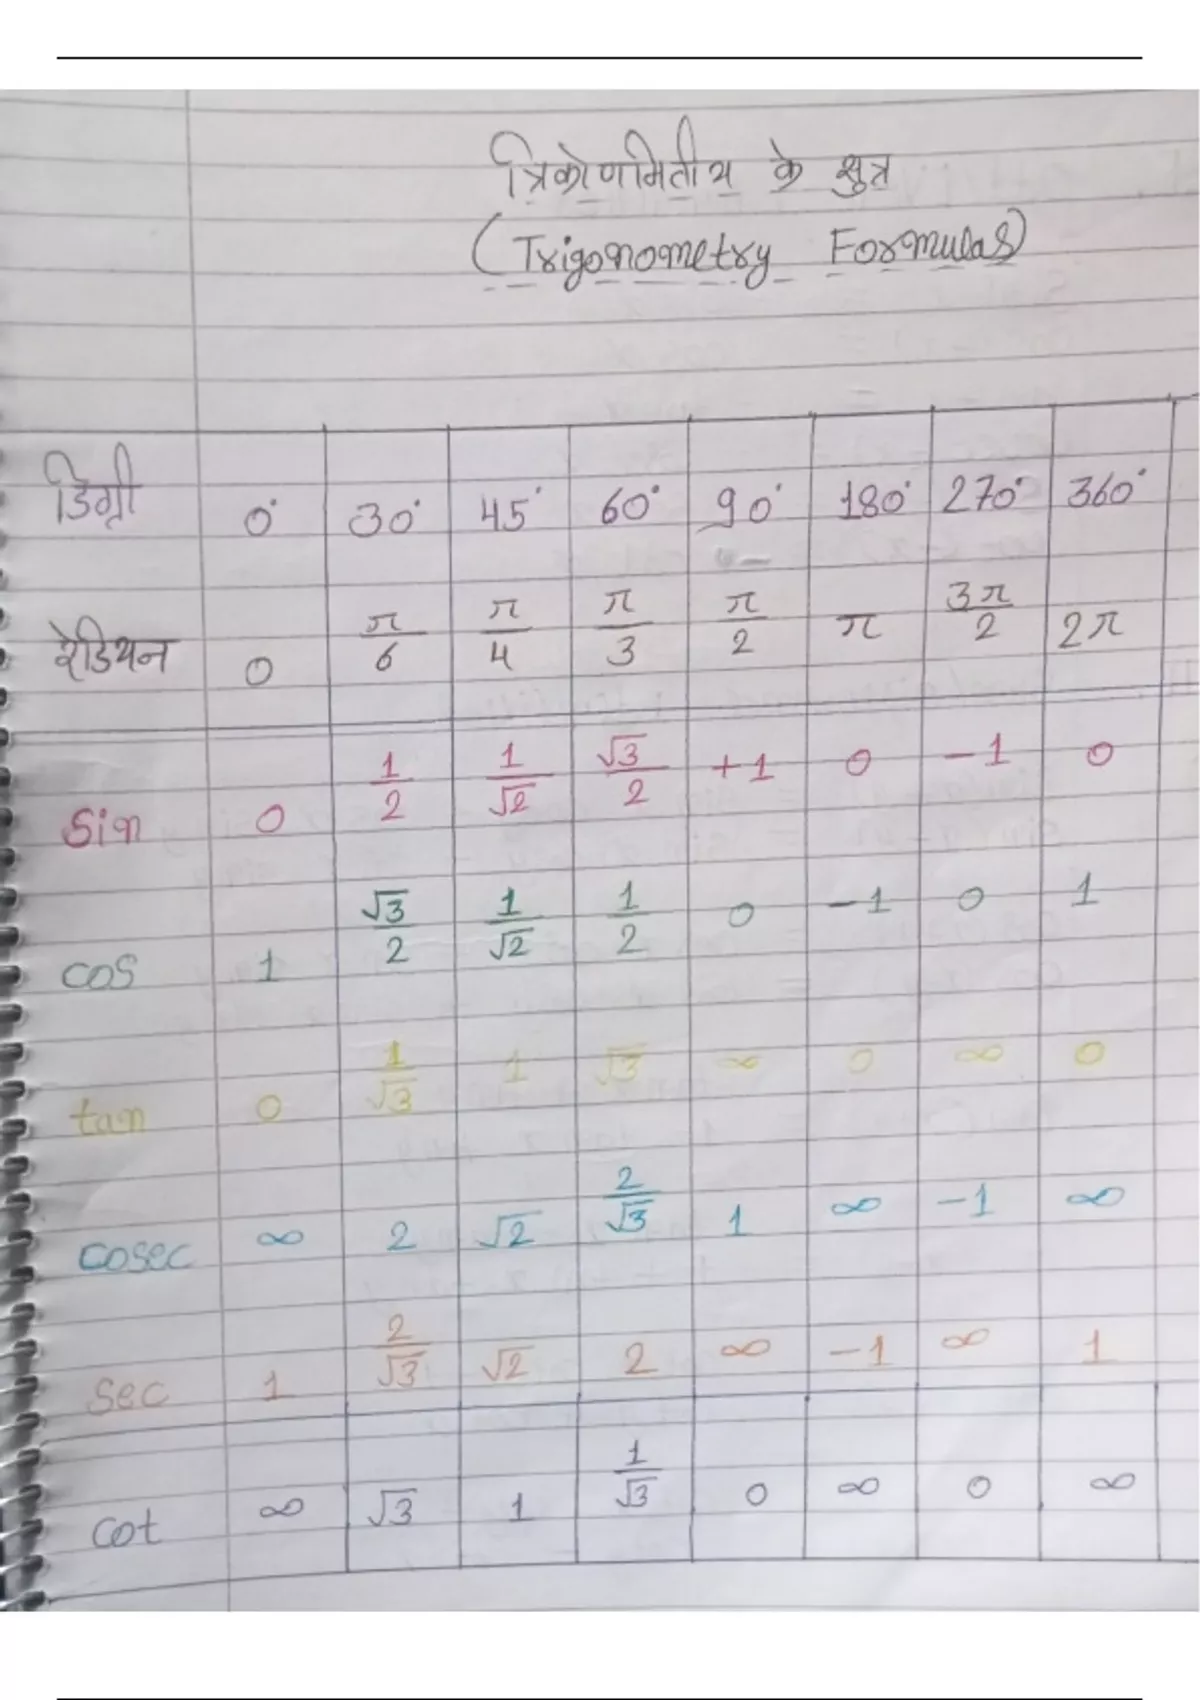 त्रिकोणमितीय के सुत्र
(Trigonometry Formulas)
डिग्री 0° 30° 45° 60° 90° 180° 270° 360°
रेडियन 0 π/6 π/4 π/3 π/2 π 3π/2 2π
Sin 0 1/2 1/√2 √3/2 +1 0 -1 0
cos 1 √3/2 1/√2 1/2 0 -1 0 1
tan 0 1/√3 1 √3 ∞ 0 ∞ 0
cosec ∞ 2 √2 2/√3 1 ∞ -1 ∞
Sec 1 2/√3 √2 2 ∞ -1 ∞ 1
cot ∞ √3 1 1/√3 0 ∞ 0 ∞